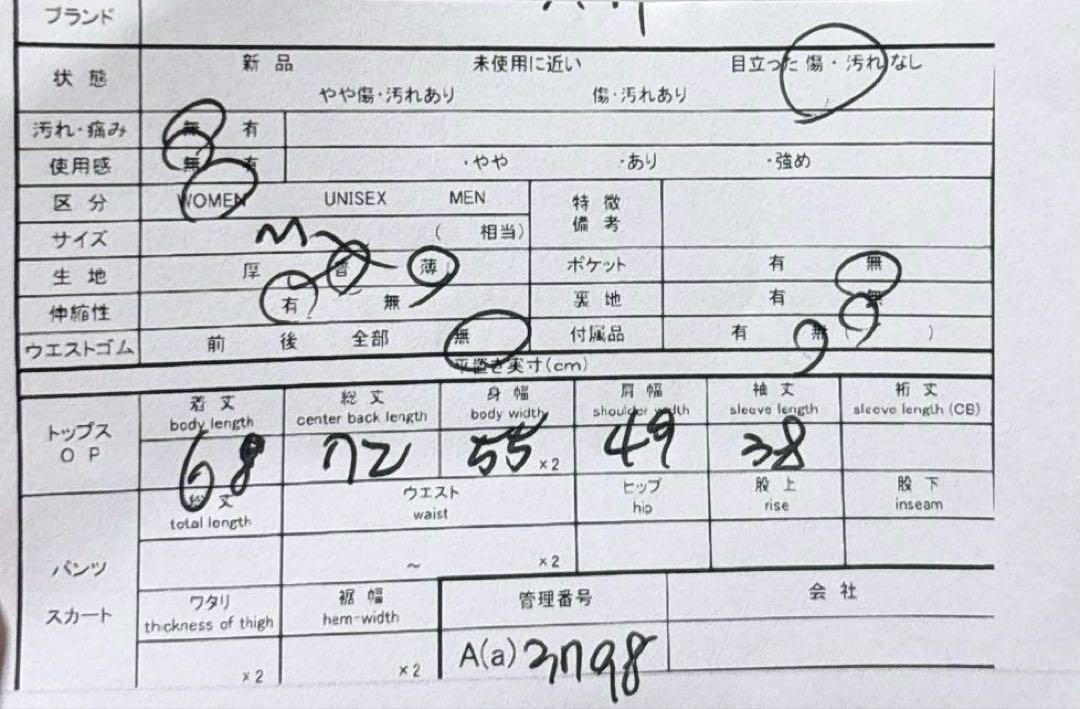 ブランド
状態 新品 未使用に近い 目立った傷・汚れなし
やや傷・汚れあり 傷・汚れあり
汚れ・痛み 無 有
使用感 無 有 ・やや ・あり ・強め
区分 WOMEN UNISEX MEN 特徴
備考
サイズ M ( 相当)
生地 厚 普 薄 ポケット 有 無
伸縮性 有 無 裏地 有 無
ウエストゴム 前 後 全部 無 付属品 有 無 ( )
平置き実寸(cm)
着丈 総丈 身幅 肩幅 袖丈 裄丈
body length center back length body width shoulder width sleeve length sleeve length (CB)
トップス
OP
68 72 55 ×2 49 38
総丈 ウエスト ヒップ 股上 股下
total length waist hip rise inseam
パンツ ~ ×2
スカート
ワタリ 裾幅 管理番号 会社
thickness of thigh hem-width
×2 ×2 A(a) 3798